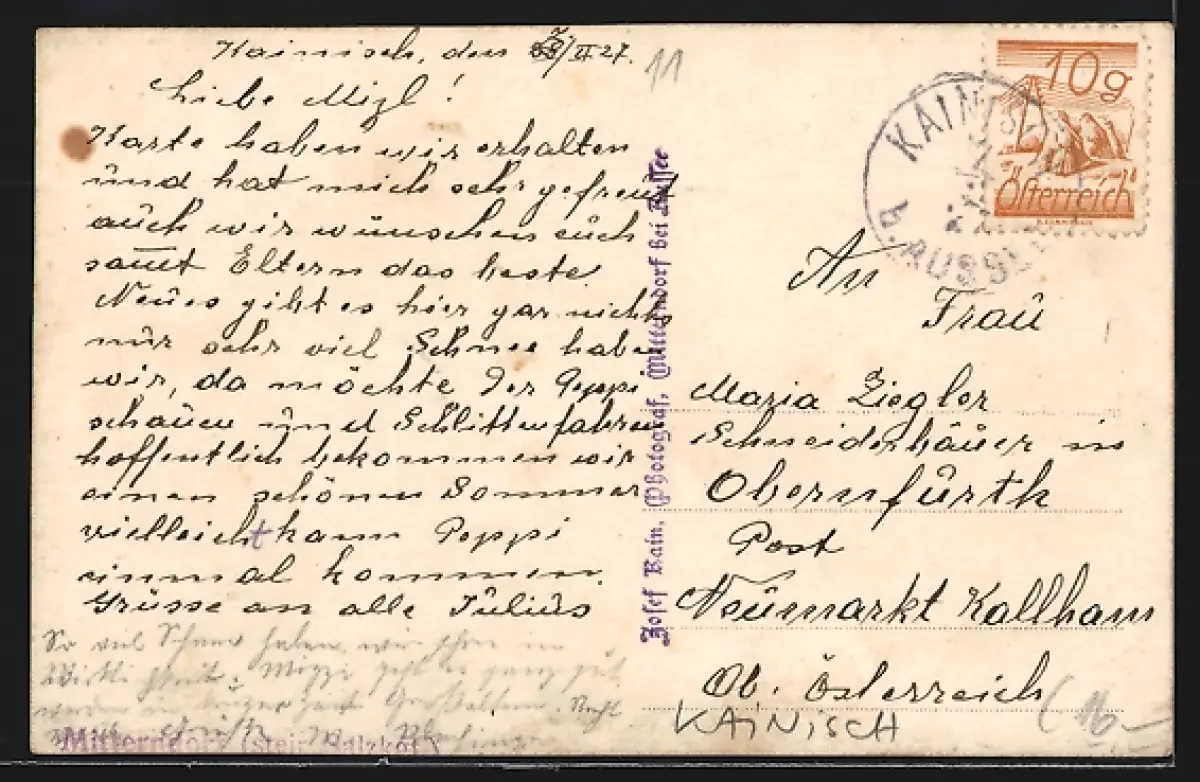 Kainisch, den /II 27.
Liebe Mizl!
Karte haben wir erhalten
und hat mich sehr gefreut
auch wir wünschen euch
samt Eltern das beste.
Neues gibt es hier gar nichts
nur sehr viel Schnee haben
wir, da möchte der Peppi
schauen und Schlittenfahren
hoffentlich bekommen wir
einen schönen Sommer
vielleicht kann Peppi
einmal kommen.
Grüsse an alle Julius
So viel Schnee haben wir schon in
Mizzi geht es ganz gut
Mitterndorf (steir. Salzkgt.)
Josef Kain, Photograf, Mitterndorf bei Aussee
11
10g
Österreich
KAINISCH
b. AUSSEE
An
Frau
Maria Ziegler
Schneiderhäuer in
Obernfürth
Post
Neumarkt Kallham
Ob. Österreich
KAINISCH